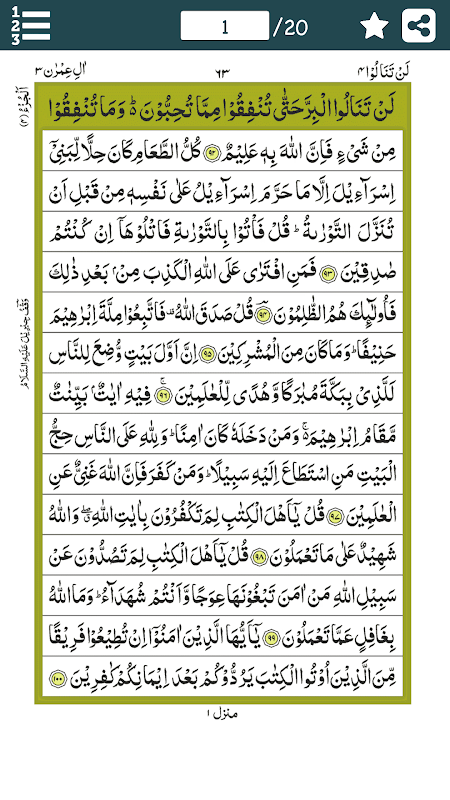 1 2 3
1 /20
لَنۡ تَنَالُوۡا ۴
٦٣
اٰلِ عِمۡرٰن ۳
اَلۡجُزۡءُ (۴)
لَنۡ تَنَالُوا الۡبِرَّ حَتّٰى تُنۡفِقُوۡا مِمَّا تُحِبُّوۡنَ ؕ وَمَا تُنۡفِقُوۡا
مِنۡ شَىۡءٍ فَاِنَّ اللّٰهَ بِهٖ عَلِيۡمٌ ﴿۹۲﴾ كُلُّ الطَّعَامِ كَانَ حِلًّا لِّبَنِىۡۤ
اِسۡرَآءِيۡلَ اِلَّا مَا حَرَّمَ اِسۡرَآءِيۡلُ عَلٰى نَفۡسِهٖ مِنۡ قَبۡلِ اَنۡ
تُنَزَّلَ التَّوۡرٰٮةُ ؕ قُلۡ فَاۡتُوۡا بِالتَّوۡرٰٮةِ فَاتۡلُوۡهَاۤ اِنۡ كُنۡتُمۡ
صٰدِقِيۡنَ ﴿۹۳﴾ فَمَنِ افۡتَرٰى عَلَى اللّٰهِ الۡكَذِبَ مِنۡۢ بَعۡدِ ذٰلِكَ
فَاُولٰٓٮِٕكَ هُمُ الظّٰلِمُوۡنَ ﴿۹۴﴾ قُلۡ صَدَقَ اللّٰهُ ۗ فَاتَّبِعُوۡا مِلَّةَ اِبۡرٰهِيۡمَ
حَنِيۡفًا ؕ وَمَا كَانَ مِنَ الۡمُشۡرِكِيۡنَ ﴿۹۵﴾ اِنَّ اَوَّلَ بَيۡتٍ وُّضِعَ لِلنَّاسِ
لَـلَّذِىۡ بِبَكَّةَ مُبٰرَكًا وَّهُدًى لِّلۡعٰلَمِيۡنَ ۚ ﴿۹۶﴾ فِيۡهِ اٰيٰتٌۢ بَيِّنٰتٌ
مَّقَامُ اِبۡرٰهِيۡمَ ۚ وَمَنۡ دَخَلَهٗ كَانَ اٰمِنًا ؕ وَلِلّٰهِ عَلَى النَّاسِ حِجُّ
الۡبَيۡتِ مَنِ اسۡتَطَاعَ اِلَيۡهِ سَبِيۡلًا ؕ وَمَنۡ كَفَرَ فَاِنَّ اللّٰهَ غَنِىٌّ عَنِ
الۡعٰلَمِيۡنَ ﴿۹۷﴾ قُلۡ يٰۤاَهۡلَ الۡكِتٰبِ لِمَ تَكۡفُرُوۡنَ بِاٰيٰتِ اللّٰهِ ۖ وَاللّٰهُ
شَهِيۡدٌ عَلٰى مَا تَعۡمَلُوۡنَ ﴿۹۸﴾ قُلۡ يٰۤاَهۡلَ الۡكِتٰبِ لِمَ تَصُدُّوۡنَ عَنۡ
سَبِيۡلِ اللّٰهِ مَنۡ اٰمَنَ تَبۡغُوۡنَهَا عِوَجًا وَّاَنۡتُمۡ شُهَدَآءُ ؕ وَمَا اللّٰهُ
بِغَافِلٍ عَمَّا تَعۡمَلُوۡنَ ﴿۹۹﴾ يٰۤاَيُّهَا الَّذِيۡنَ اٰمَنُوۡۤا اِنۡ تُطِيۡعُوۡا فَرِيۡقًا
مِّنَ الَّذِيۡنَ اُوۡتُوا الۡكِتٰبَ يَرُدُّوۡكُمۡ بَعۡدَ اِيۡمَانِكُمۡ كٰفِرِيۡنَ ﴿۱۰۰﴾
وقف جبريل عليه السلام
منزل ۱